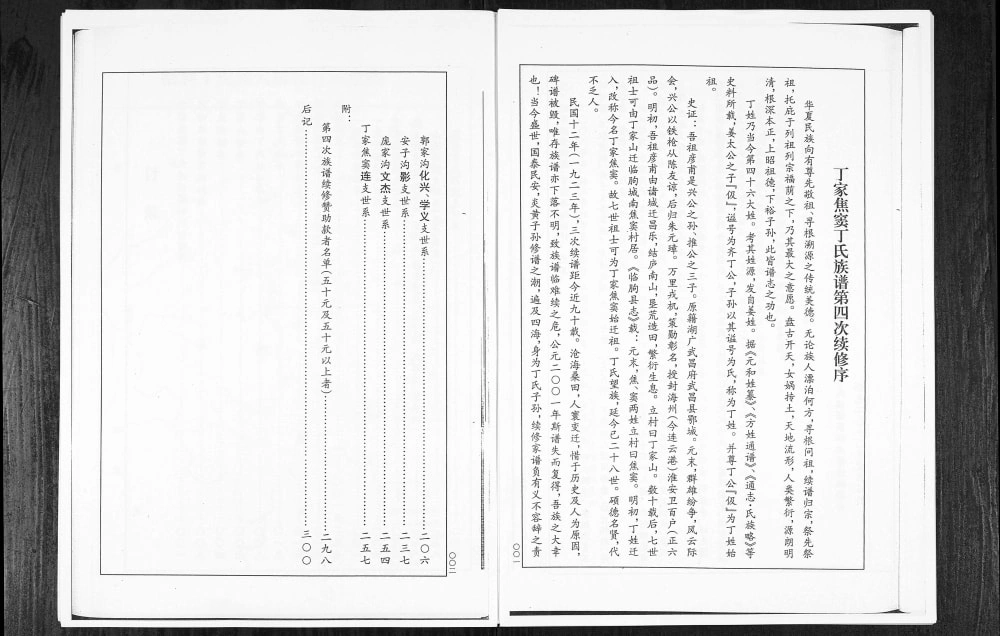 丁家焦窦丁氏族谱第四次续修序
华夏民族向有尊先敬祖、寻根溯源之传统美德。无论族人漂泊何方，寻根问祖，续谱归宗，祭先祭
祖，托庇于列祖列宗福荫之下，乃其最大之意愿。盘古开天，女娲抟土，天地流形，人类繁衍，源朗明
清，根深本正，上昭祖德，下裕子孙，此皆谱志之功也。
丁姓乃当今第四十六大姓。考其姓源，发自姜姓。据《元和姓纂》、《万姓通谱》、《通志·氏族略》等
史料所载，姜太公之子『伋』，谥号为齐丁公，子孙以其谥号为氏，称为丁姓。并尊丁公『伋』为丁姓始
祖。
史证：吾祖彦甫是兴公之孙、推公之三子。原籍湖广武昌府武昌县鄂城。元末，群雄纷争，风云际
会，兴公以铁枪从陈友谅，后归朱元璋。万里戎机，策勋彰名，授封海州（今连云港）淮安卫百户（正六
品）。明初，吾祖彦甫由诸城迁昌乐，结庐南山，垦荒造田，繁衍生息。立村曰丁家山。数十载后，七世
祖士可由丁家山迁临朐城南焦窦村居。《临朐县志》载：元末，焦、窦两姓立村曰焦窦。明初，丁姓迁
入，改称今名丁家焦窦。故七世祖士可为丁家焦窦始迁祖。丁氏望族，延今已二十八世。硕德名贤，代
不乏人。
民国十二年（一九二三年），三次续谱距今近九十载。沧海桑田，人寰变迁，惜于历史及人为原因，
碑谱被毁，唯存族谱亦下落不明，致族谱临难续之危，公元二〇〇一年斯谱失而复得，吾族之大幸
也！当今盛世，国泰民安，炎黄子孙修谱之潮，遍及四海，身为丁氏子孙，续修家谱负有义不容辞之责
〇〇一
郭家沟化兴、学义支世系……二〇六
安子沟影支世系……二三七
庞家沟文杰支世系……二五四
丁家焦窦连支世系……二五七
附：
第四次族谱续修赞助款者名单（五十元及五十元以上者）……二九八
后记……三〇〇
〇〇二